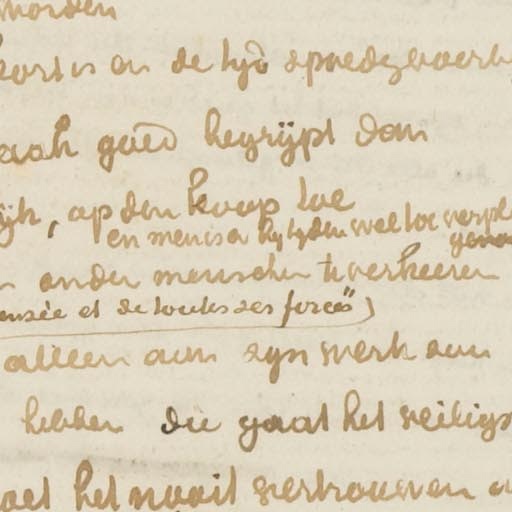 worden
kort is en de tijd spoedig voorbij
zaak goed begrijpt dan
lijk, op den koop toe
en men is er bij tijden wel toe verpl
onder menschen te verkeeren
ensée et de toutes ses forces")
alleen aan zijn werk aan
hebben die gaat het veiligs
oet het nooit vertrouwen